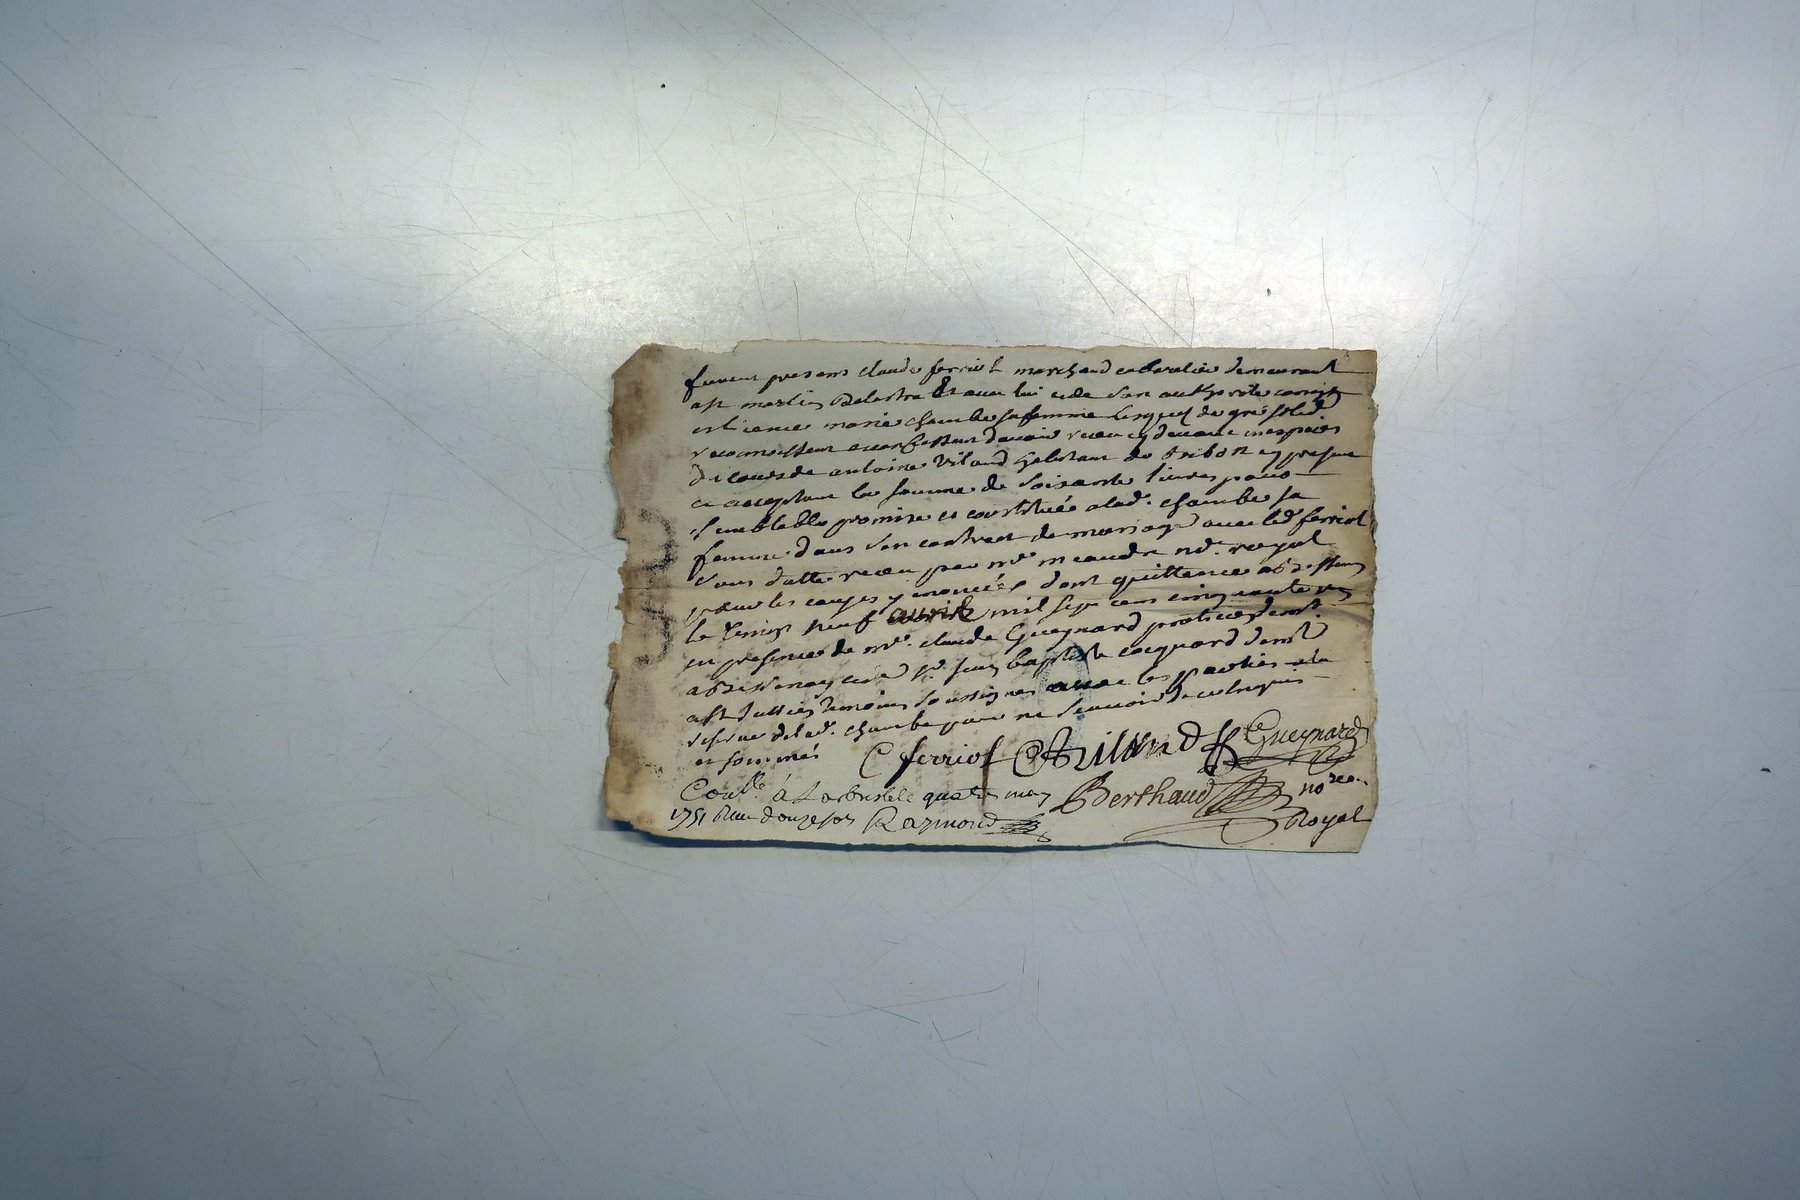 furent presens claude ferriol marchand cabaretier demeurant
a st martin Delestra Et avec lui et de son authorité
et licence marie chambe sa femme lesquels de gré solid.
reconnoissent et confessent d'avoir receu cy devant en espèces
De cours de antoine Vilard habitant de cy present
et acceptant la somme de soixante livres pour
semblable promise et constituée a lad. chambe sa
femme dans son contract de mariage avec led ferriol
sous datte receu par me meaudre no.re royal
pour les causes y enoncées dont quittance
le vingt neuf avril mil sept cens cinquante un
en presence de me claude Gueynard praticien demt.
et sr. jean baptiste coquard demt
a st temoins soussignés avec les parties a la
reserve delad. chambe pour ne scavoir de ce enquise
et sommée
C ferriol A Vilard Gueynard
Coulle á Larbresle quatre may Berthaud no.re
1751 Reçu douze sols Raymond Royal